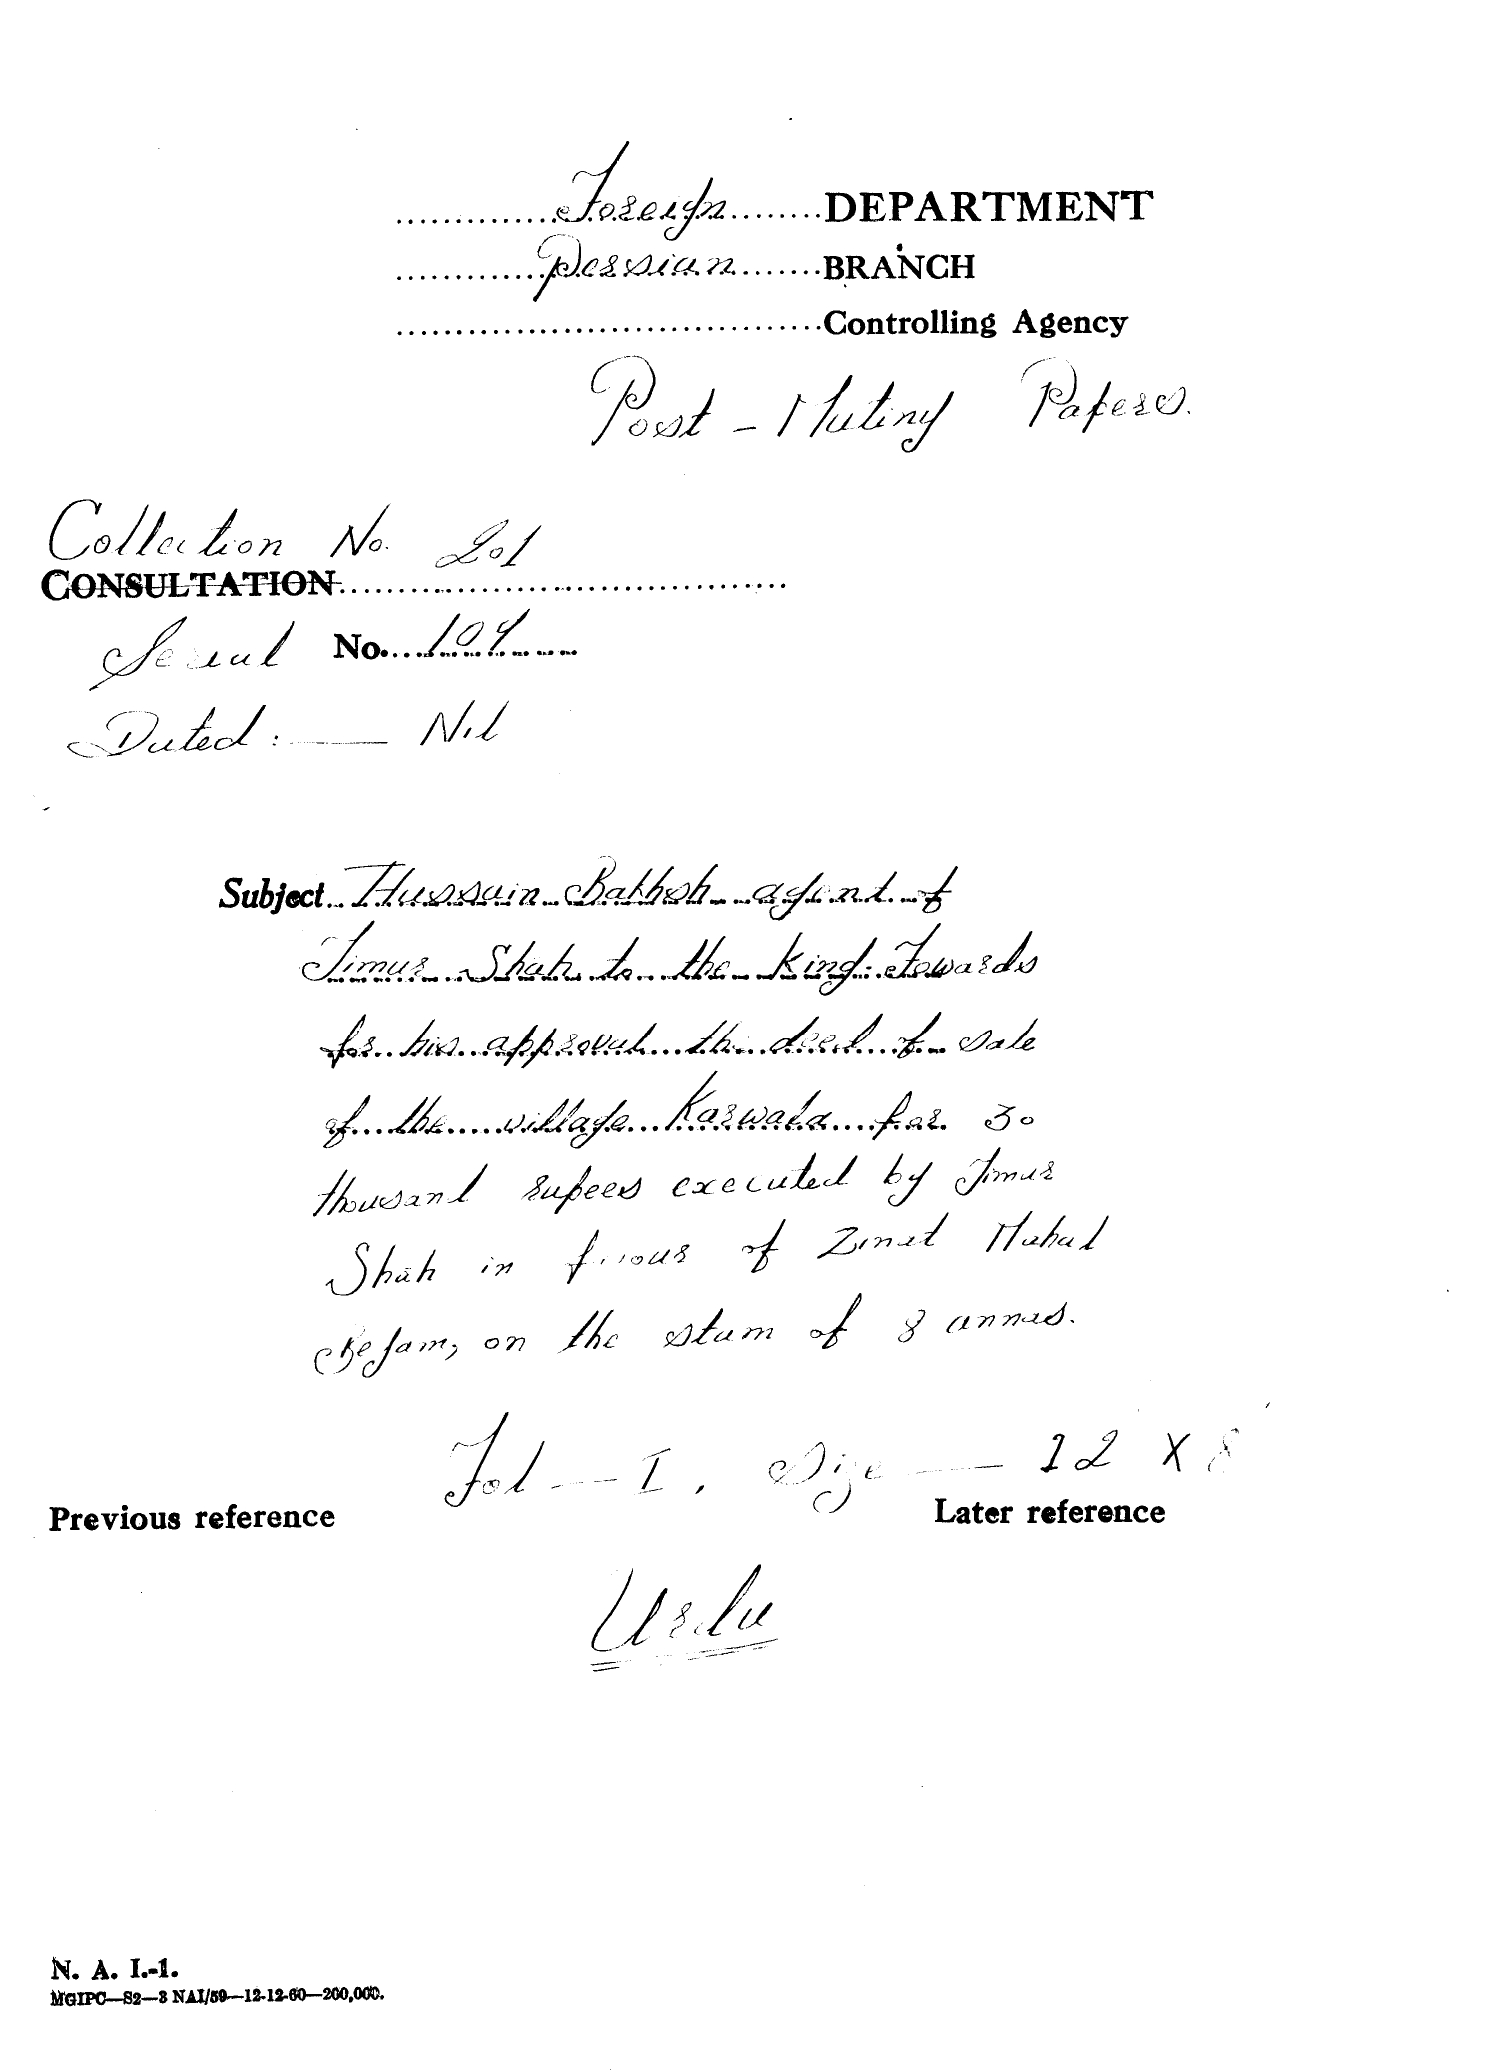 Foreign DEPARTMENT
Persian BRANCH
Controlling Agency
Post - Mutiny Papers.
Collection No. 201
CONSULTATION
Serial No. 109
Dated : — Nil
Subject Hussain Bakhsh agent of
Timur Shah to the King: Fowards
for his approval the deed of sale
of the village Karwala for 30
thousand rupees executed by Timur
Shah in favour of Zinat Mahal
Begam, on the stam of 8 annas.
Fol — I, Size — 12 X 8
Previous reference Later reference
Urdu
N. A. I.-1.
MGIPC—S2—3 NAI/59—12-12-60—200,000.